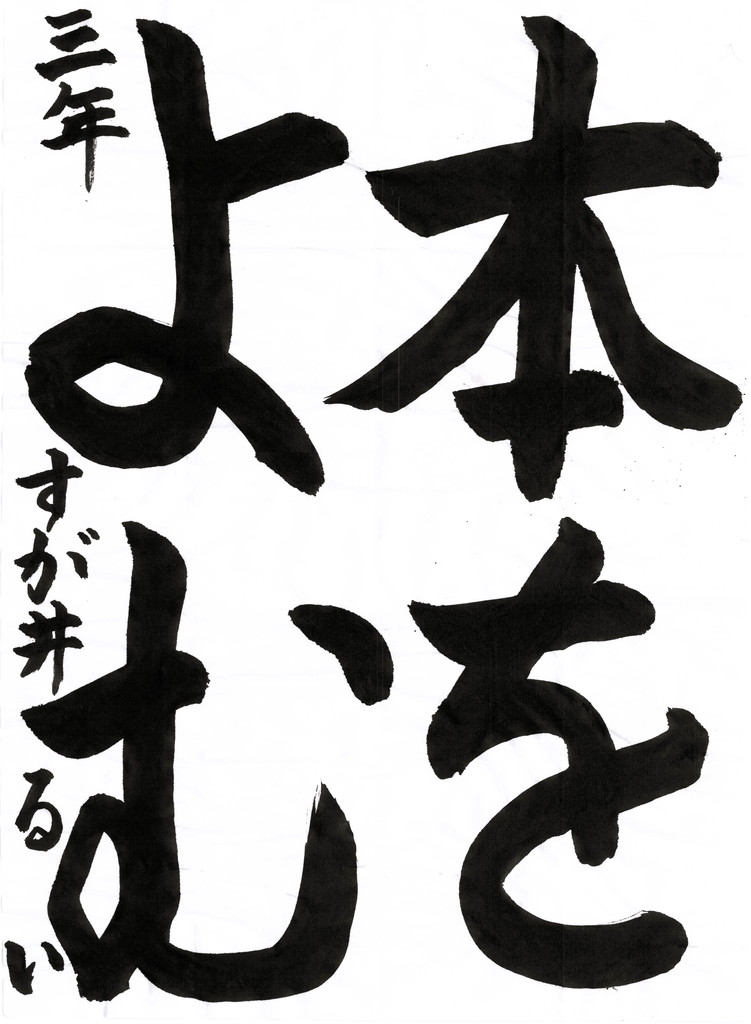 本を
よむ
三年 すが井 るい